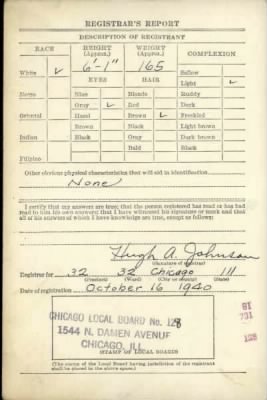 REGISTRAR'S REPORT
DESCRIPTION OF REGISTRANT
RACE HEIGHT (Approx.) WEIGHT (Approx.) COMPLEXION
6'-1" 165 Sallow
White ✓ EYES HAIR Light ✓
Negro Blue Blonde Ruddy
Gray ✓ Red Dark
Oriental Hazel Brown ✓ Freckled
Brown Black Light brown
Indian Black Gray Dark brown
Bald Black
Filipino
Other obvious physical characteristics that will aid in identification
None
I certify that my answers are true; that the person registered has read or has had
read to him his own answers; that I have witnessed his signature or mark and that
all of his answers of which I have knowledge are true, except as follows:
Hugh A. Johnson
(Signature of registrar)
Registrar for 32 32 Chicago Ill
(Precinct) (Ward) (City or county) (State)
Date of registration October 16 1940
CHICAGO LOCAL BOARD No. 128
1544 N. DAMEN AVENUE
CHICAGO, ILL
STAMP OF LOCAL BOARD
(The stamp of the Local Board having jurisdiction of the registrant
shall be placed in the above space.)